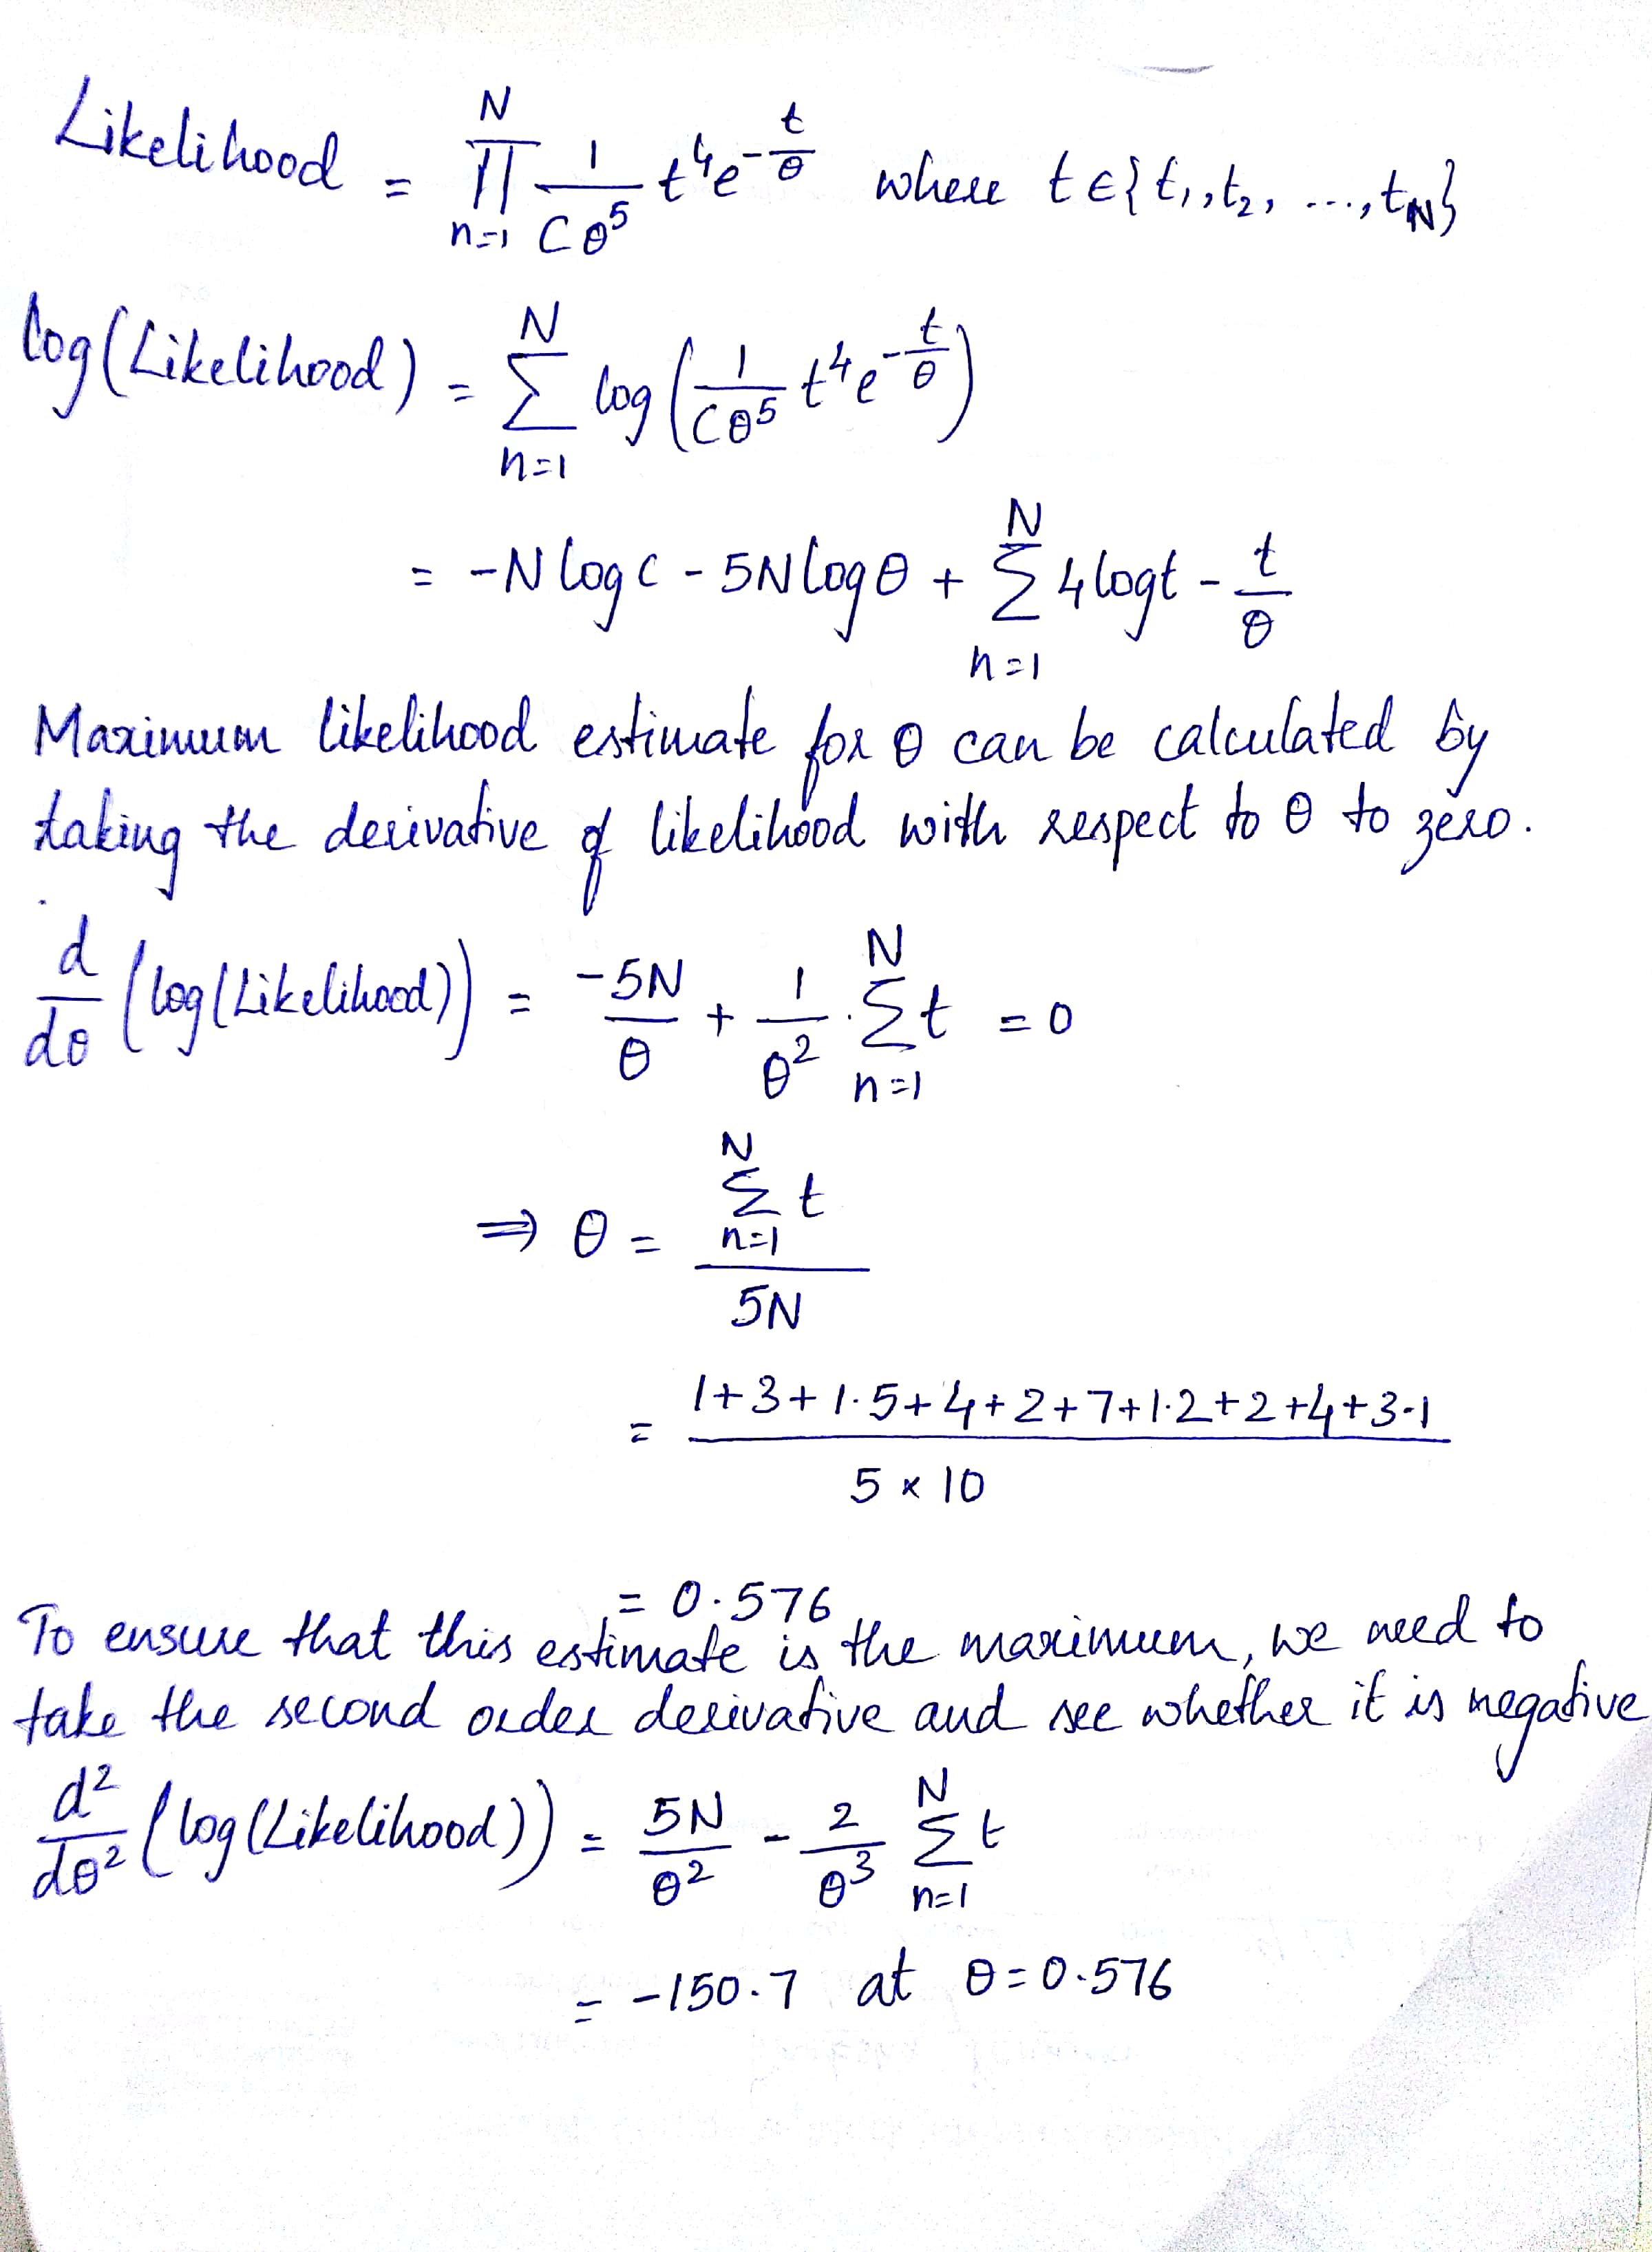 Likelihood = ∏_{n=1}^{N} \frac{1}{Cθ^5} t^4 e^{-\frac{t}{θ}} where t ∈ {t_1, t_2, ..., t_N}
log(Likelihood) = ∑_{n=1}^{N} log(\frac{1}{Cθ^5} t^4 e^{-\frac{t}{θ}})
= -N log C - 5N log θ + ∑_{n=1}^{N} 4 log t - \frac{t}{θ}
Maximum likelihood estimate for θ can be calculated by
taking the derivative of likelihood with respect to θ to zero.
\frac{d}{dθ} (log(Likelihood)) = \frac{-5N}{θ} + \frac{1}{θ^2} . ∑_{n=1}^{N} t = 0
⇒ θ = \frac{∑_{n=1}^{N} t}{5N}
= \frac{1+3+1.5+4+2+7+1.2+2+4+3.1}{5 × 10}
= 0.576
To ensure that this estimate is the maximum, we need to
take the second order derivative and see whether it is negative
\frac{d^2}{dθ^2} (log(Likelihood)) = \frac{5N}{θ^2} - \frac{2}{θ^3} ∑_{n=1}^{N} t
= -150.7 at θ = 0.576